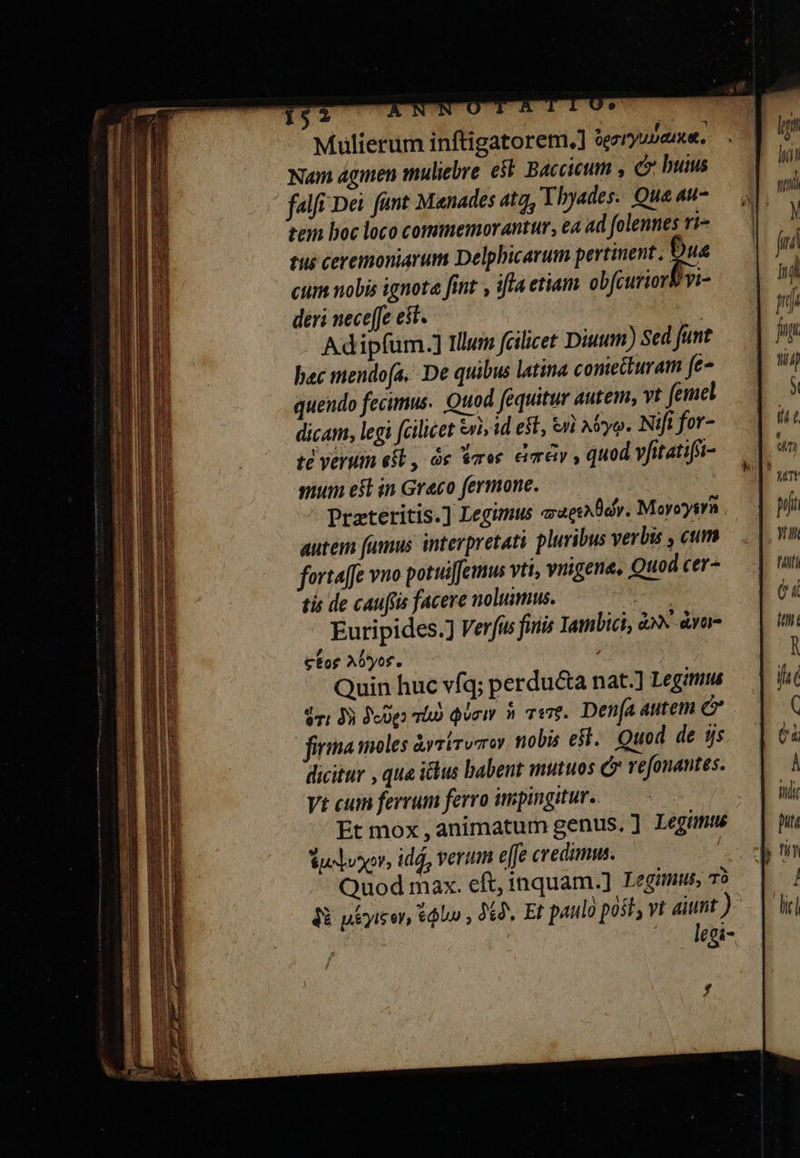 152 ANNOTATIO.
Mulierum inſtigatorem.] ὀρσιγύναικα.
Nam agmen muliebre eſt Baccicum , & huius
falſi Dei ſunt Mænades atq, Thyades. Quæ au-
tem hoc loco commemorantur, ea ad ſolennes ri-
tus ceremoniarum Delphicarum pertinent. Quæ
cum nobis ignota ſint , iſta etiam obſcuriora vi-
deri neceſſe eſt.
Ad ipſum.] Illum ſcilicet Diuum) Sed ſunt
hæc mendoſa. De quibus latina coniecturam ſe-
quendo fecimus. Quod ſequitur autem, vt ſemel
dicam, legi ſcilicet ἑνὶ, id eſt, ἑνὶ λόγῳ. Niſi for-
tè verum eſt , ὡς ἔπος εἰπεῖν , quod vſitatiſsi-
mum eſt in Græco ſermone.
Præteritis.] Legimus παρελθεῖν. Μονογενῆ
autem ſumus interpretati pluribus verbis , cum
fortaſſe vno potuiſſemus vti, vnigena, Quod cer-
tis de cauſsis facere noluimus.
Euripides.] Verſus finis Iambici, ἀλλ' ἀνα-
στέος λόγος.
Quin huc vſq; perducta nat.] Legimus
ὅτι δὴ δεῦρο τὴν φύσιν ἡ τοτε. Denſa autem &
firma moles ἀντίτυπον nobis eſt. Quod de ijs
dicitur , quæ ictus habent mutuos & reſonantes.
Vt cum ferrum ferro impingitur.
Et mox , animatum genus. ] Legimus
ἔμψυχον, idq, verum eſſe credimus.
Quod max. eſt, inquam.] Legimus, τὸ
δὲ μέγιστον, ἔφην , δέδ. Et paulò póſt, vt aiunt )
legi-